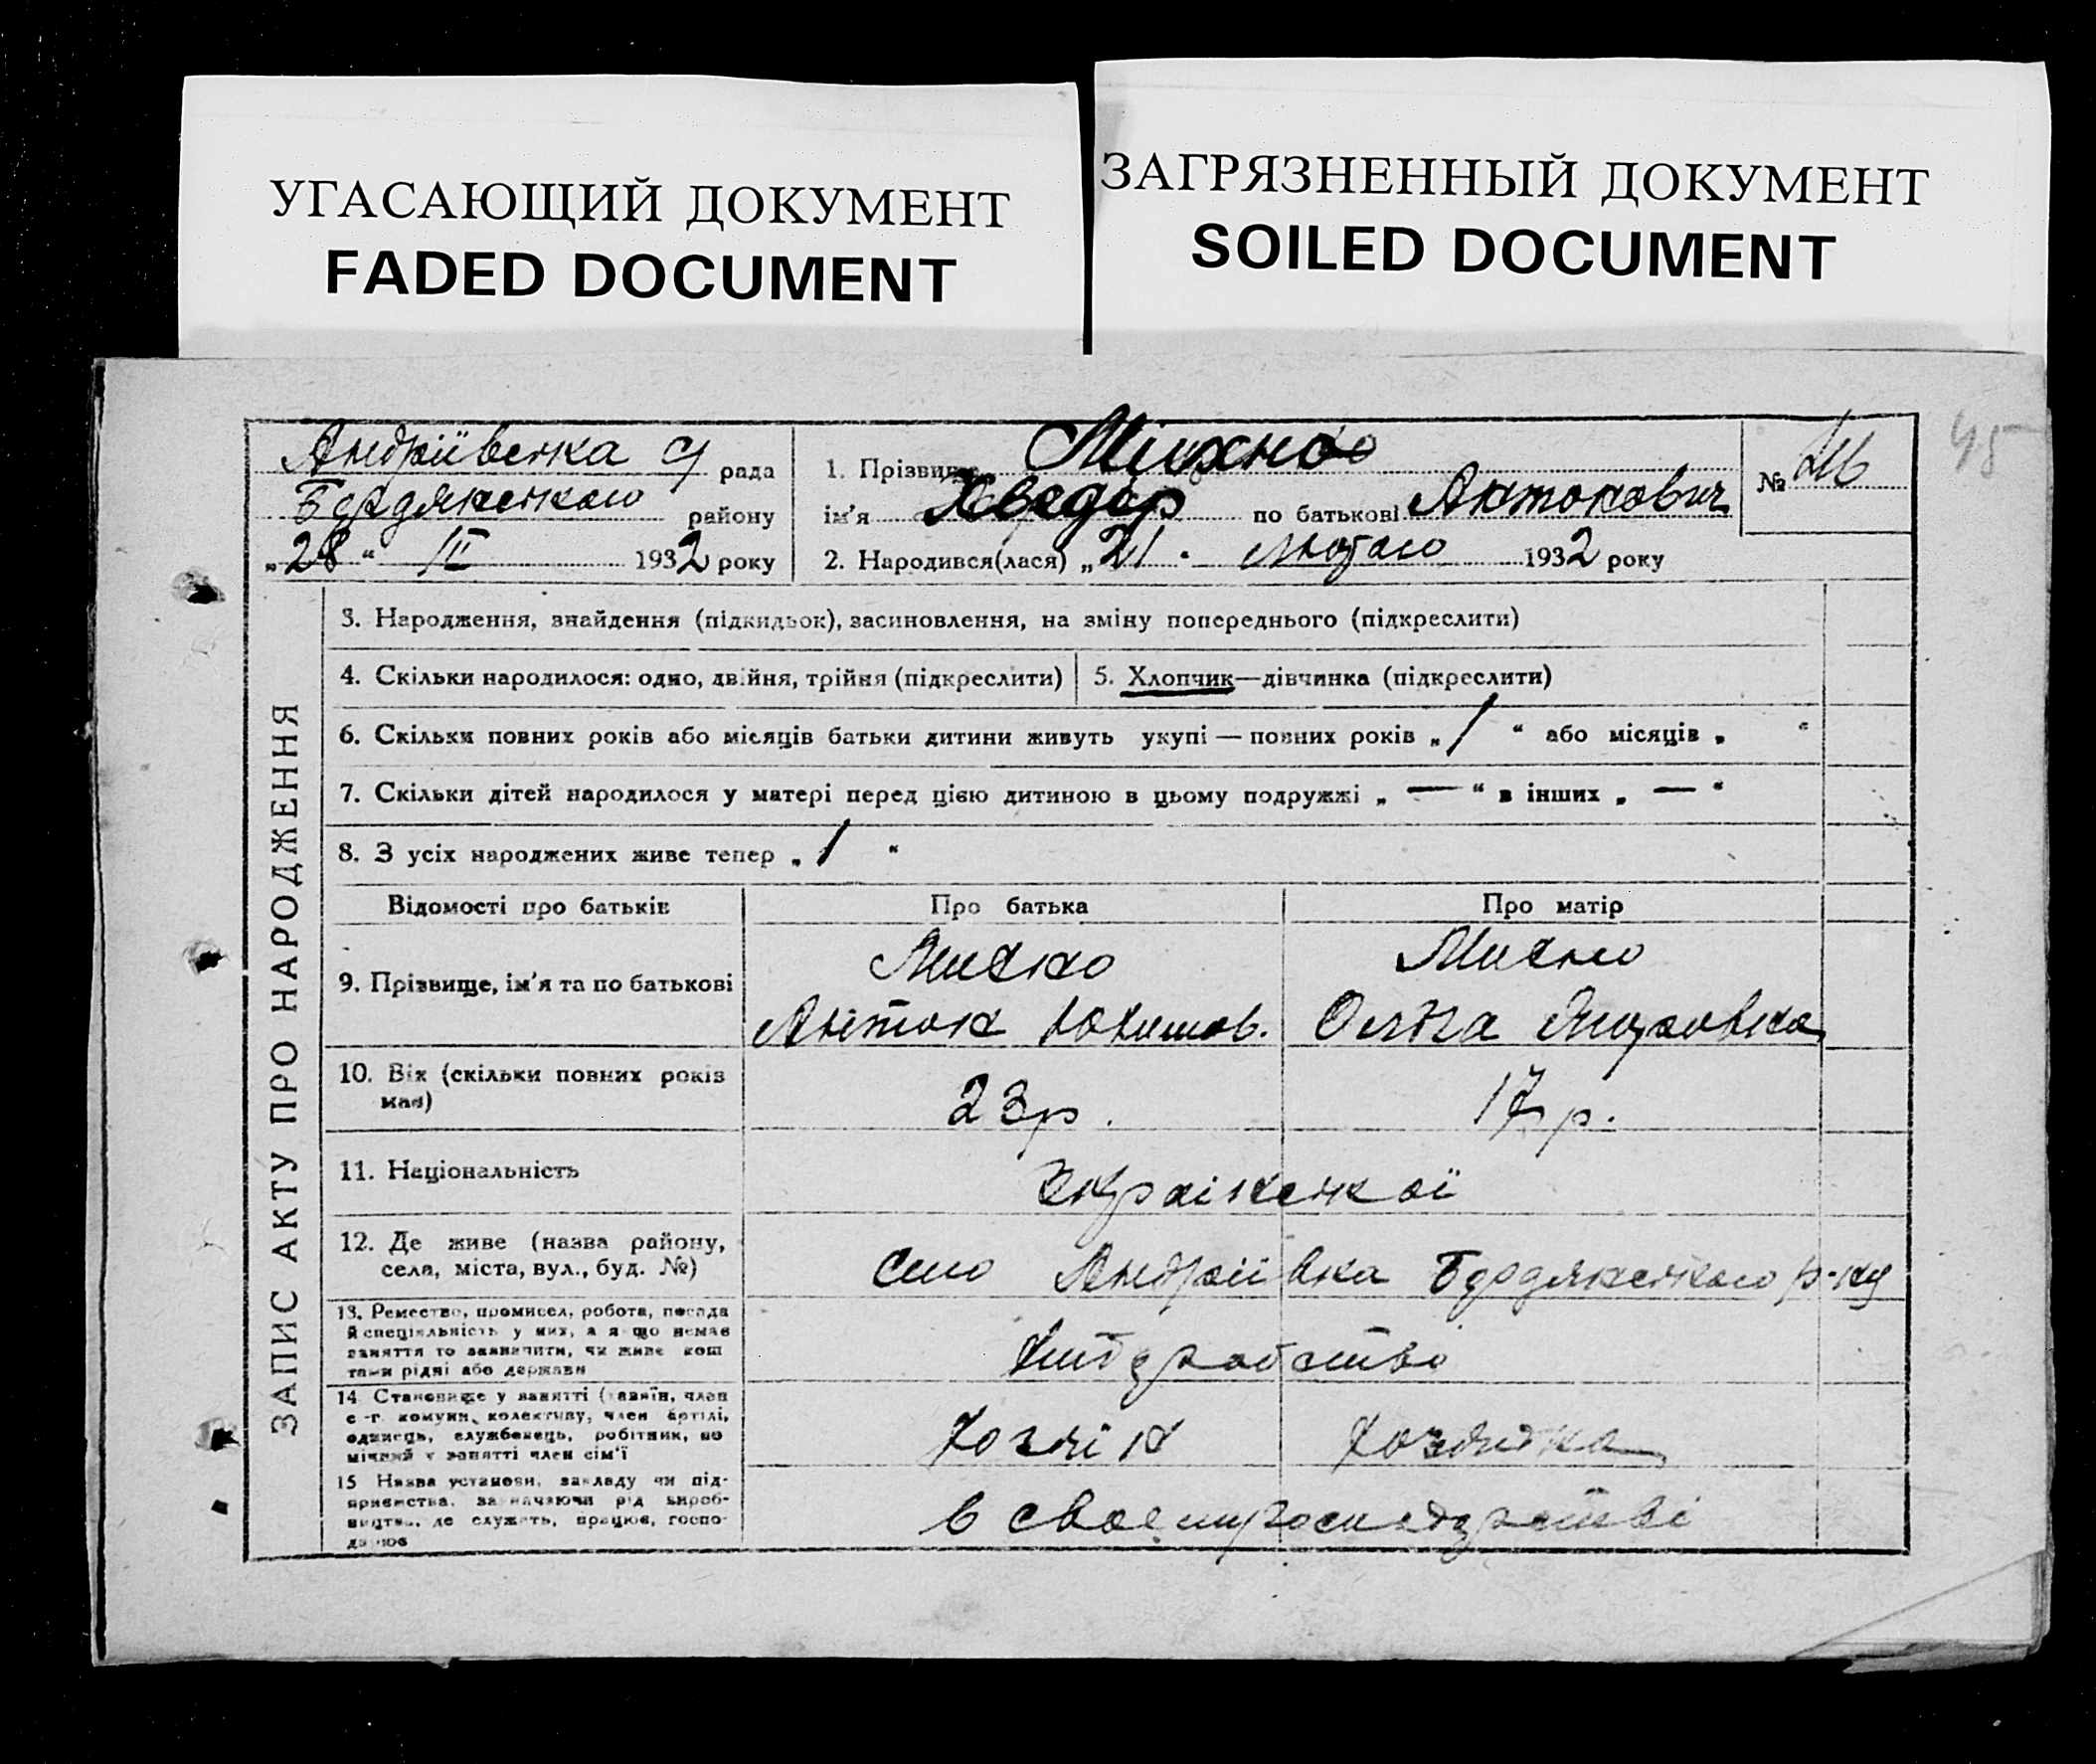 УГАСАЮЩИЙ ДОКУМЕНТ
FADED DOCUMENT
ЗАГРЯЗНЕННЫЙ ДОКУМЕНТ
SOILED DOCUMENT
45
рада
району
„28“ 1932 року
1. Прізвище Міхно
ім'я Хведір по батькові Антонович
2. Народився(лася) „21 лютого 1932 року
№
ЗАПИС АКТУ ПРО НАРОДЖЕННЯ
3. Народження, знайдення (підкидьок), засиновлення, на зміну попереднього (підкреслити)
4. Скільки народилося: одно, двійня, трійня (підкреслити)
5. Хлопчик—дівчинка (підкреслити)
6. Скільки повних років або місяців батьки дитини живуть укупі — повних років „1“ або місяців „ “
7. Скільки дітей народилося у матері перед цією дитиною в цьому подружжі „—“ в інших „—“
8. З усіх народжених живе тепер „1“
Відомості про батьків
Про батька
Про матір
9. Прізвище, ім'я та по батькові
Михно
Антон
Михно
Ольга
10. Вік (скільки повних років має)
23 р.
17 р.
11. Національність
Української
12. Де живе (назва району,
села, міста, вул., буд. №)
село Андріївка Бердянського р-ну
13. Ремество, промисел, робота, посада
й спеціяльність у них, а якщо немає
заняття то зазначити, чи живе кош
тами рідні або держави
Хліборобство
14. Становище у занятті (хазяїн, член
с-г. комуни, колективу, член артілі,
одинець, службовець, робітник, по
мічний у занятті член сім'ї
15 Назва установи, закладу чи під-
приємства, зазначаючи рід вироб-
ництва, де служить, працює, госпо-
дарює
в своему господарстві